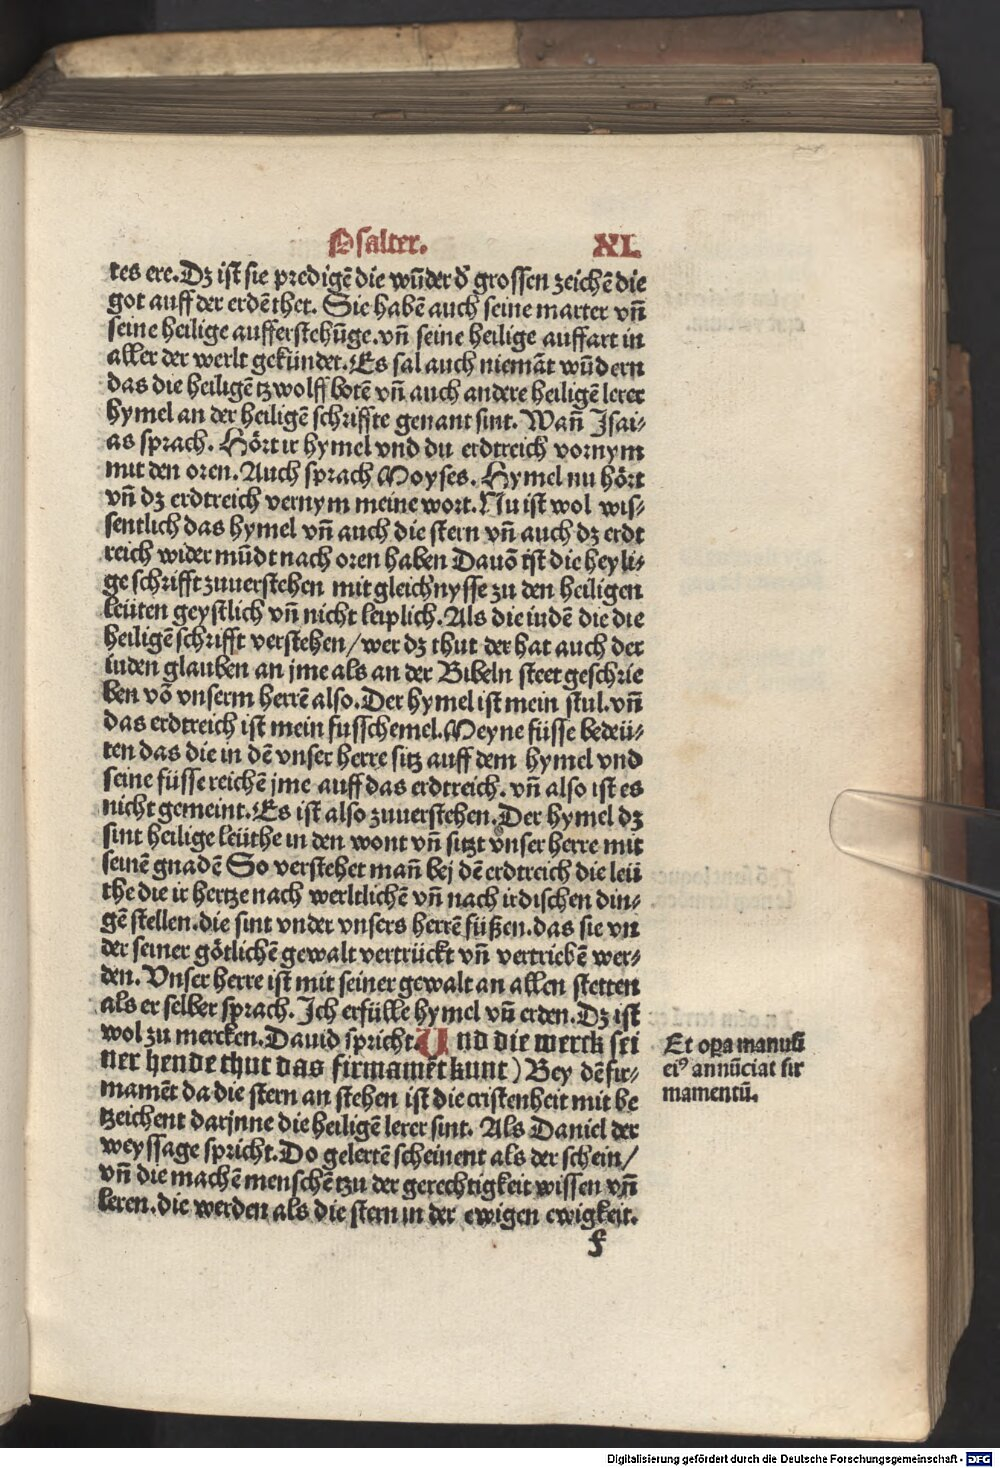 Psalter. XL.
tes ere. Dz ist sie predigē die wūder d̄ grossen zeichē die
got auff der erdē thet. Sie habē auch seine marter vñ
seine heilige aufferstehūge. vñ seine heilige auffart in
aller der werlt gekündet. Es sal auch niemāt wūdern
das die heiligē tzwolff botē vñ auch andere heiligē lerer
hymel an der heiligē schriffte genant sint. Wañ Isai-
as sprach. Hört ir hymel vnd du erdtreich vornym
mit den oren. Auch sprach Moyses. Hymel nu hört
vñ dz erdtreich vernym meine wort. Nu ist wol wis-
sentlich das hymel vñ auch die stern vñ auch dz erdt
reich wider mūdt nach oren haben Dauō ist die heyli-
ge schrifft zuuerstehen mit gleichnysse zu den heiligen
leüten geystlich vñ nicht leiplich. Als die iudē die die
heiligē schrifft verstehen/wer dz thut der hat auch der
iuden glauben an jme als an der Bibeln steet geschrie
ben vō vnserm herrē also. Der hymel ist mein stul. vñ
das erdtreich ist mein fusschemel. Meyne füsse bedeü-
ten das die in dē vnser herre sitz auff dem hymel vnd
seine füsse reichē jme auff das erdtreich. vñ also ist es
nicht gemeint. Es ist also zuuerstehen. Der hymel dz
sint heilige leüthe in den wont vñ sitzt vnser herre mit
seinē gnadē So verstehet mañ bej dē erdtreich die leü
the die ir hertze nach werltlichē vñ nach irdischen din-
gē stellen. die sint vnder vnsers herrē füßen. das sie vn
der seiner götlichē gewalt vertrückt vñ vertriebē wer-
den. Vnser herre ist mit seiner gewalt an allen stetten
als er selber sprach. Ich erfülle hymel vñ erden. Dz ist
wol zu mercken. Dauid spricht Und die werck sei
ner hende thut das firmamēt kunt) Bey dē fir-
mamēt da die stern an stehen ist die cristenheit mit be
tzeichent darjnne die heiligē lerer sint. Als Daniel der
weyssage spricht. Do gelertē scheinent als der schein/
vñ die machē menschē tzu der gerechtigkeit wissen vñ
leren. die werden als die stern in der ewigen ewigkeit.
f
Et oꝑa manuū
eiꝰ annūciat fir
mamentū.
Digitalisierung gefördert durch die Deutsche Forschungsgemeinschaft - DFG